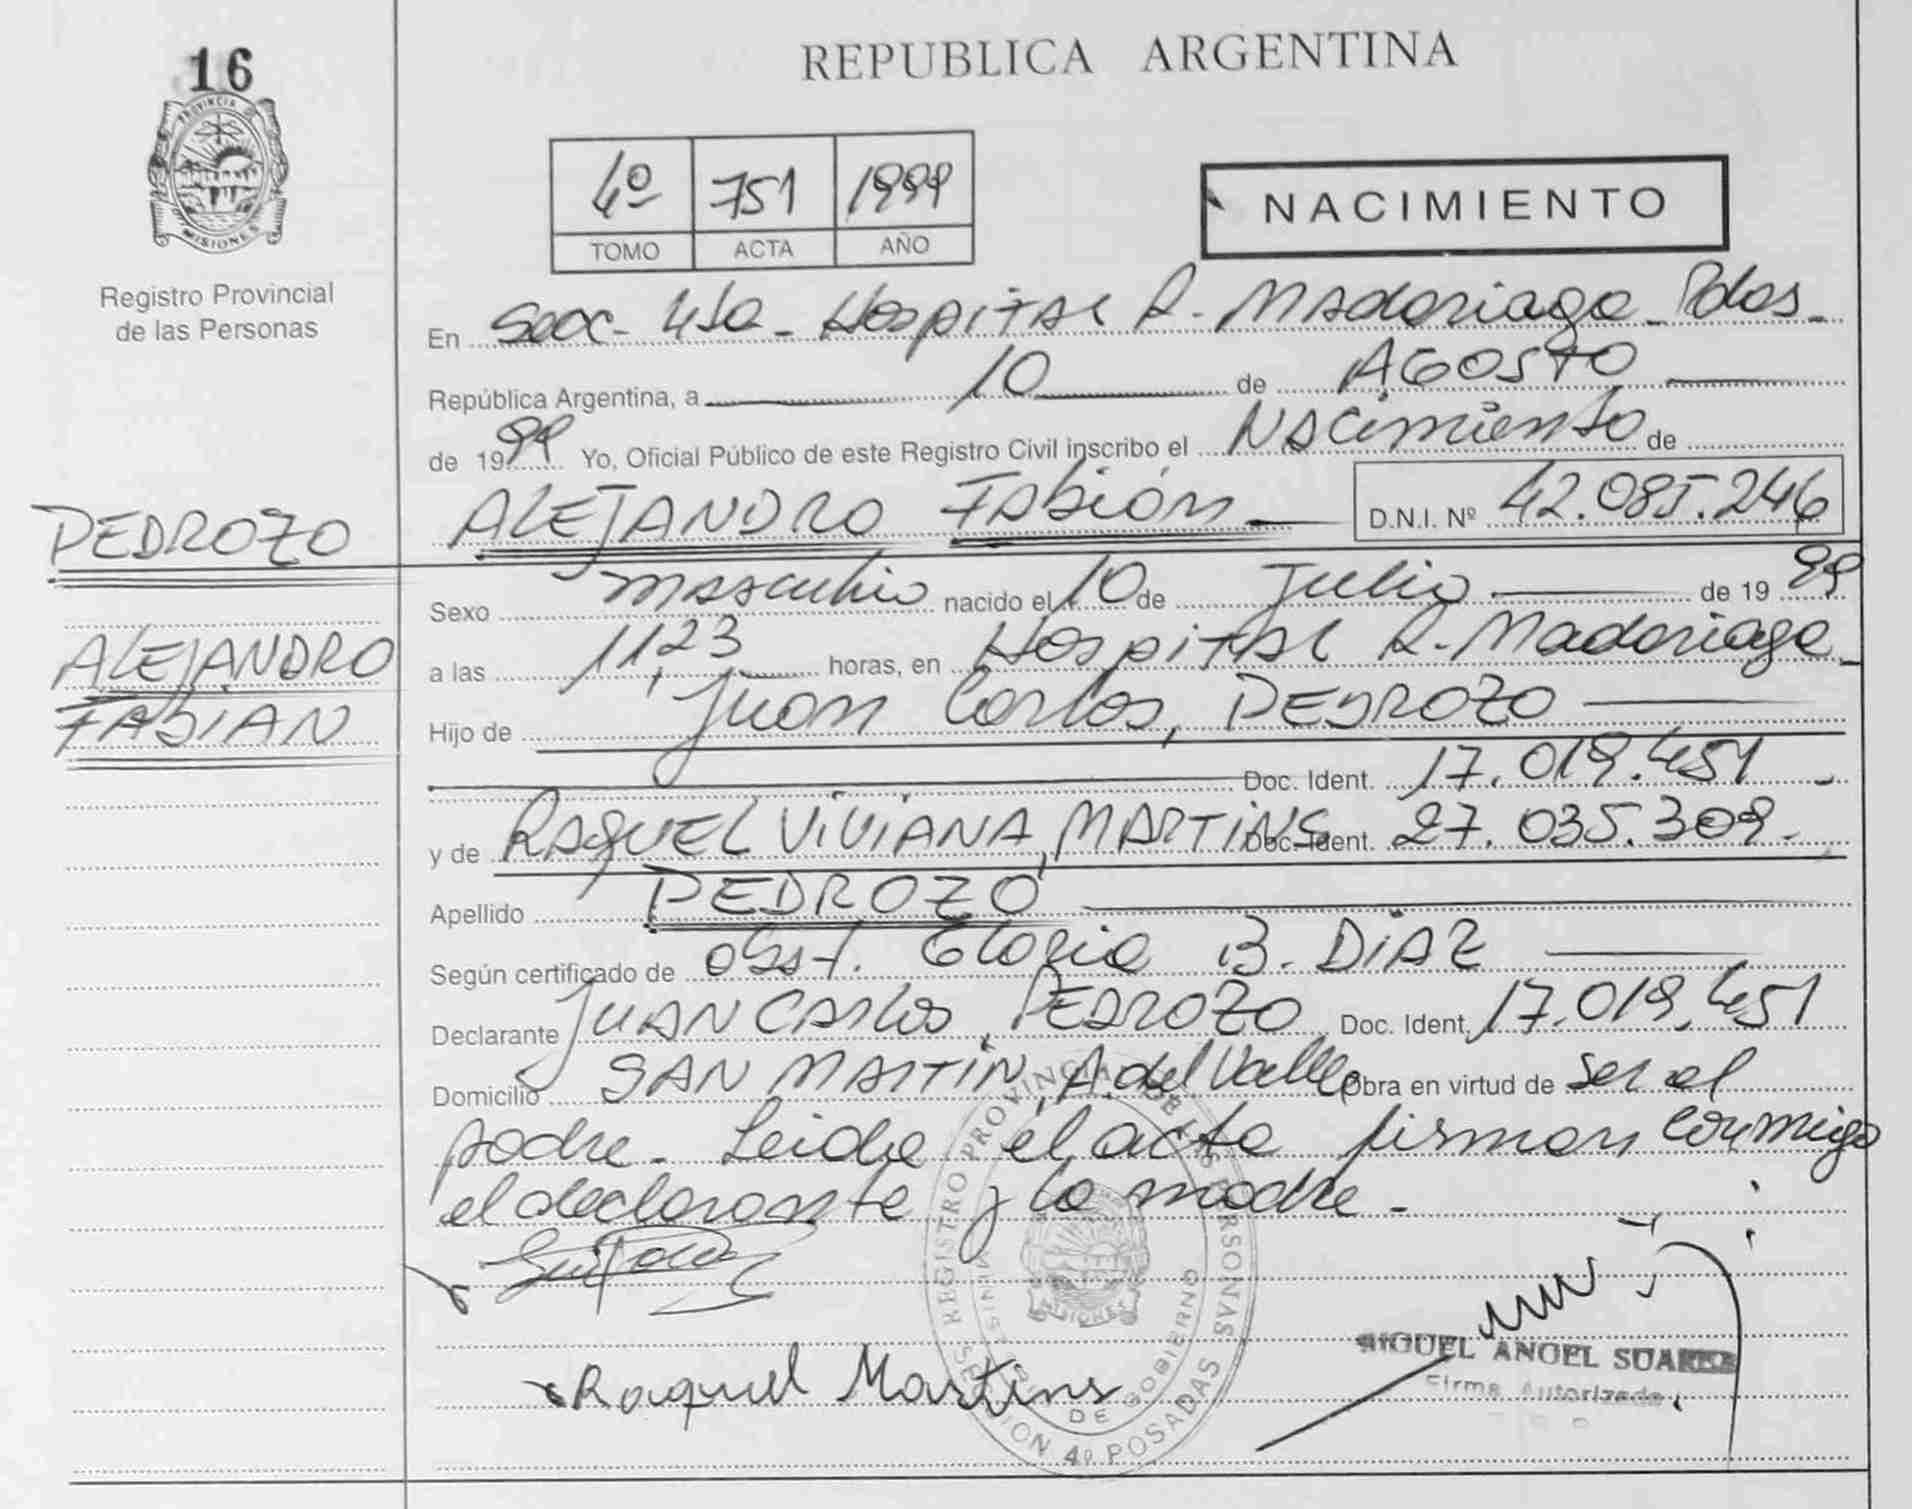 16
PROVINCIA DE MISIONES
Registro Provincial
de las Personas
REPUBLICA ARGENTINA
4º 751 1999
TOMO ACTA AÑO
NACIMIENTO
En Secc- 4ta- Hospital R. Madariaga- Pdas-
República Argentina, a 10 de AGOSTO
de 1999 Yo, Oficial Público de este Registro Civil inscribo el Nacimiento de
PEDROZO ALEJANDRO Fabián D.N.I. Nº 42.085.246
Sexo masculino nacido el 10 de Julio de 1999
ALEJANDRO
FABIAN
a las 11,23 horas, en Hospital R. Madariaga-
Hijo de Juan Carlos, PEDROZO
Doc. Ident. 17.019.451
y de RAQUEL VIVIANA, MARTINS Doc. Ident. 27.035.309.
Apellido PEDROZO
Según certificado de Obst. Gloria B. DIAZ
Declarante JUAN CARLOS, PEDROZO Doc. Ident. 17.019.451
Domicilio SAN MARTIN, A. del Valle Obra en virtud de ser el
padre. Leída el acta firman conmigo
el declarante y la madre.
Raquel Martins
REGISTRO PROVINCIAL DE LAS PERSONAS
MINISTERIO DE GOBIERNO
SECCION 4º POSADAS
MISIONES
MIGUEL ANGEL SUAREZ
Firma Autorizada